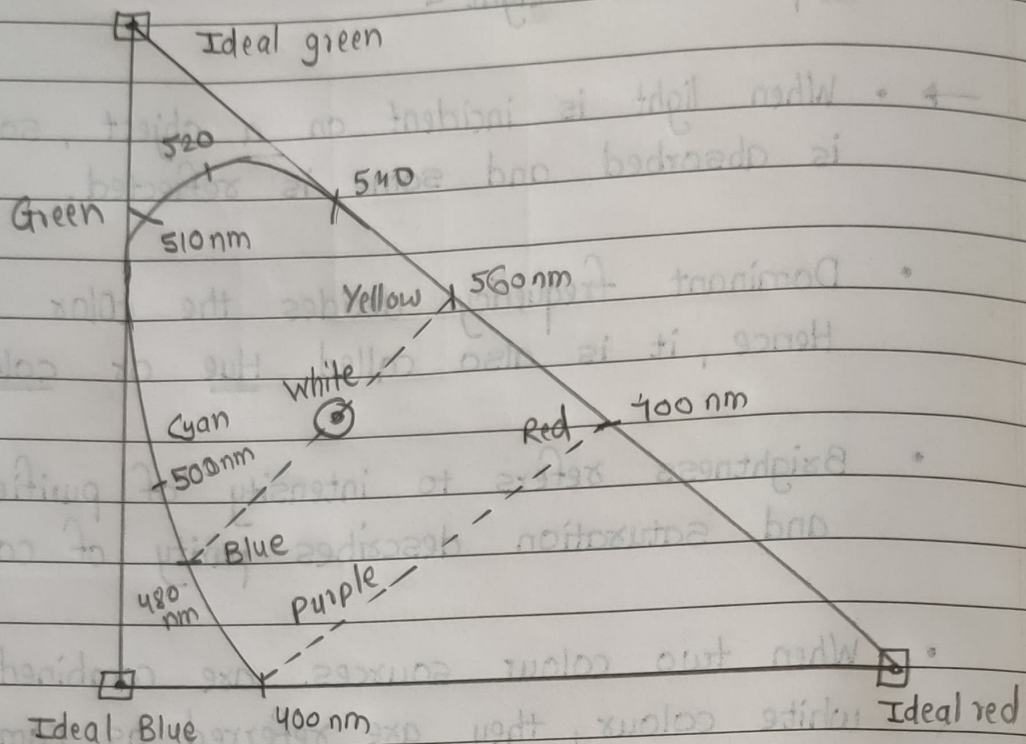 Ideal green
520
540
Green
510nm
Yellow
560nm
White
400 nm
Cyan
Red
500nm
Blue
480
nm
Purple
Ideal Blue
400nm
Ideal red